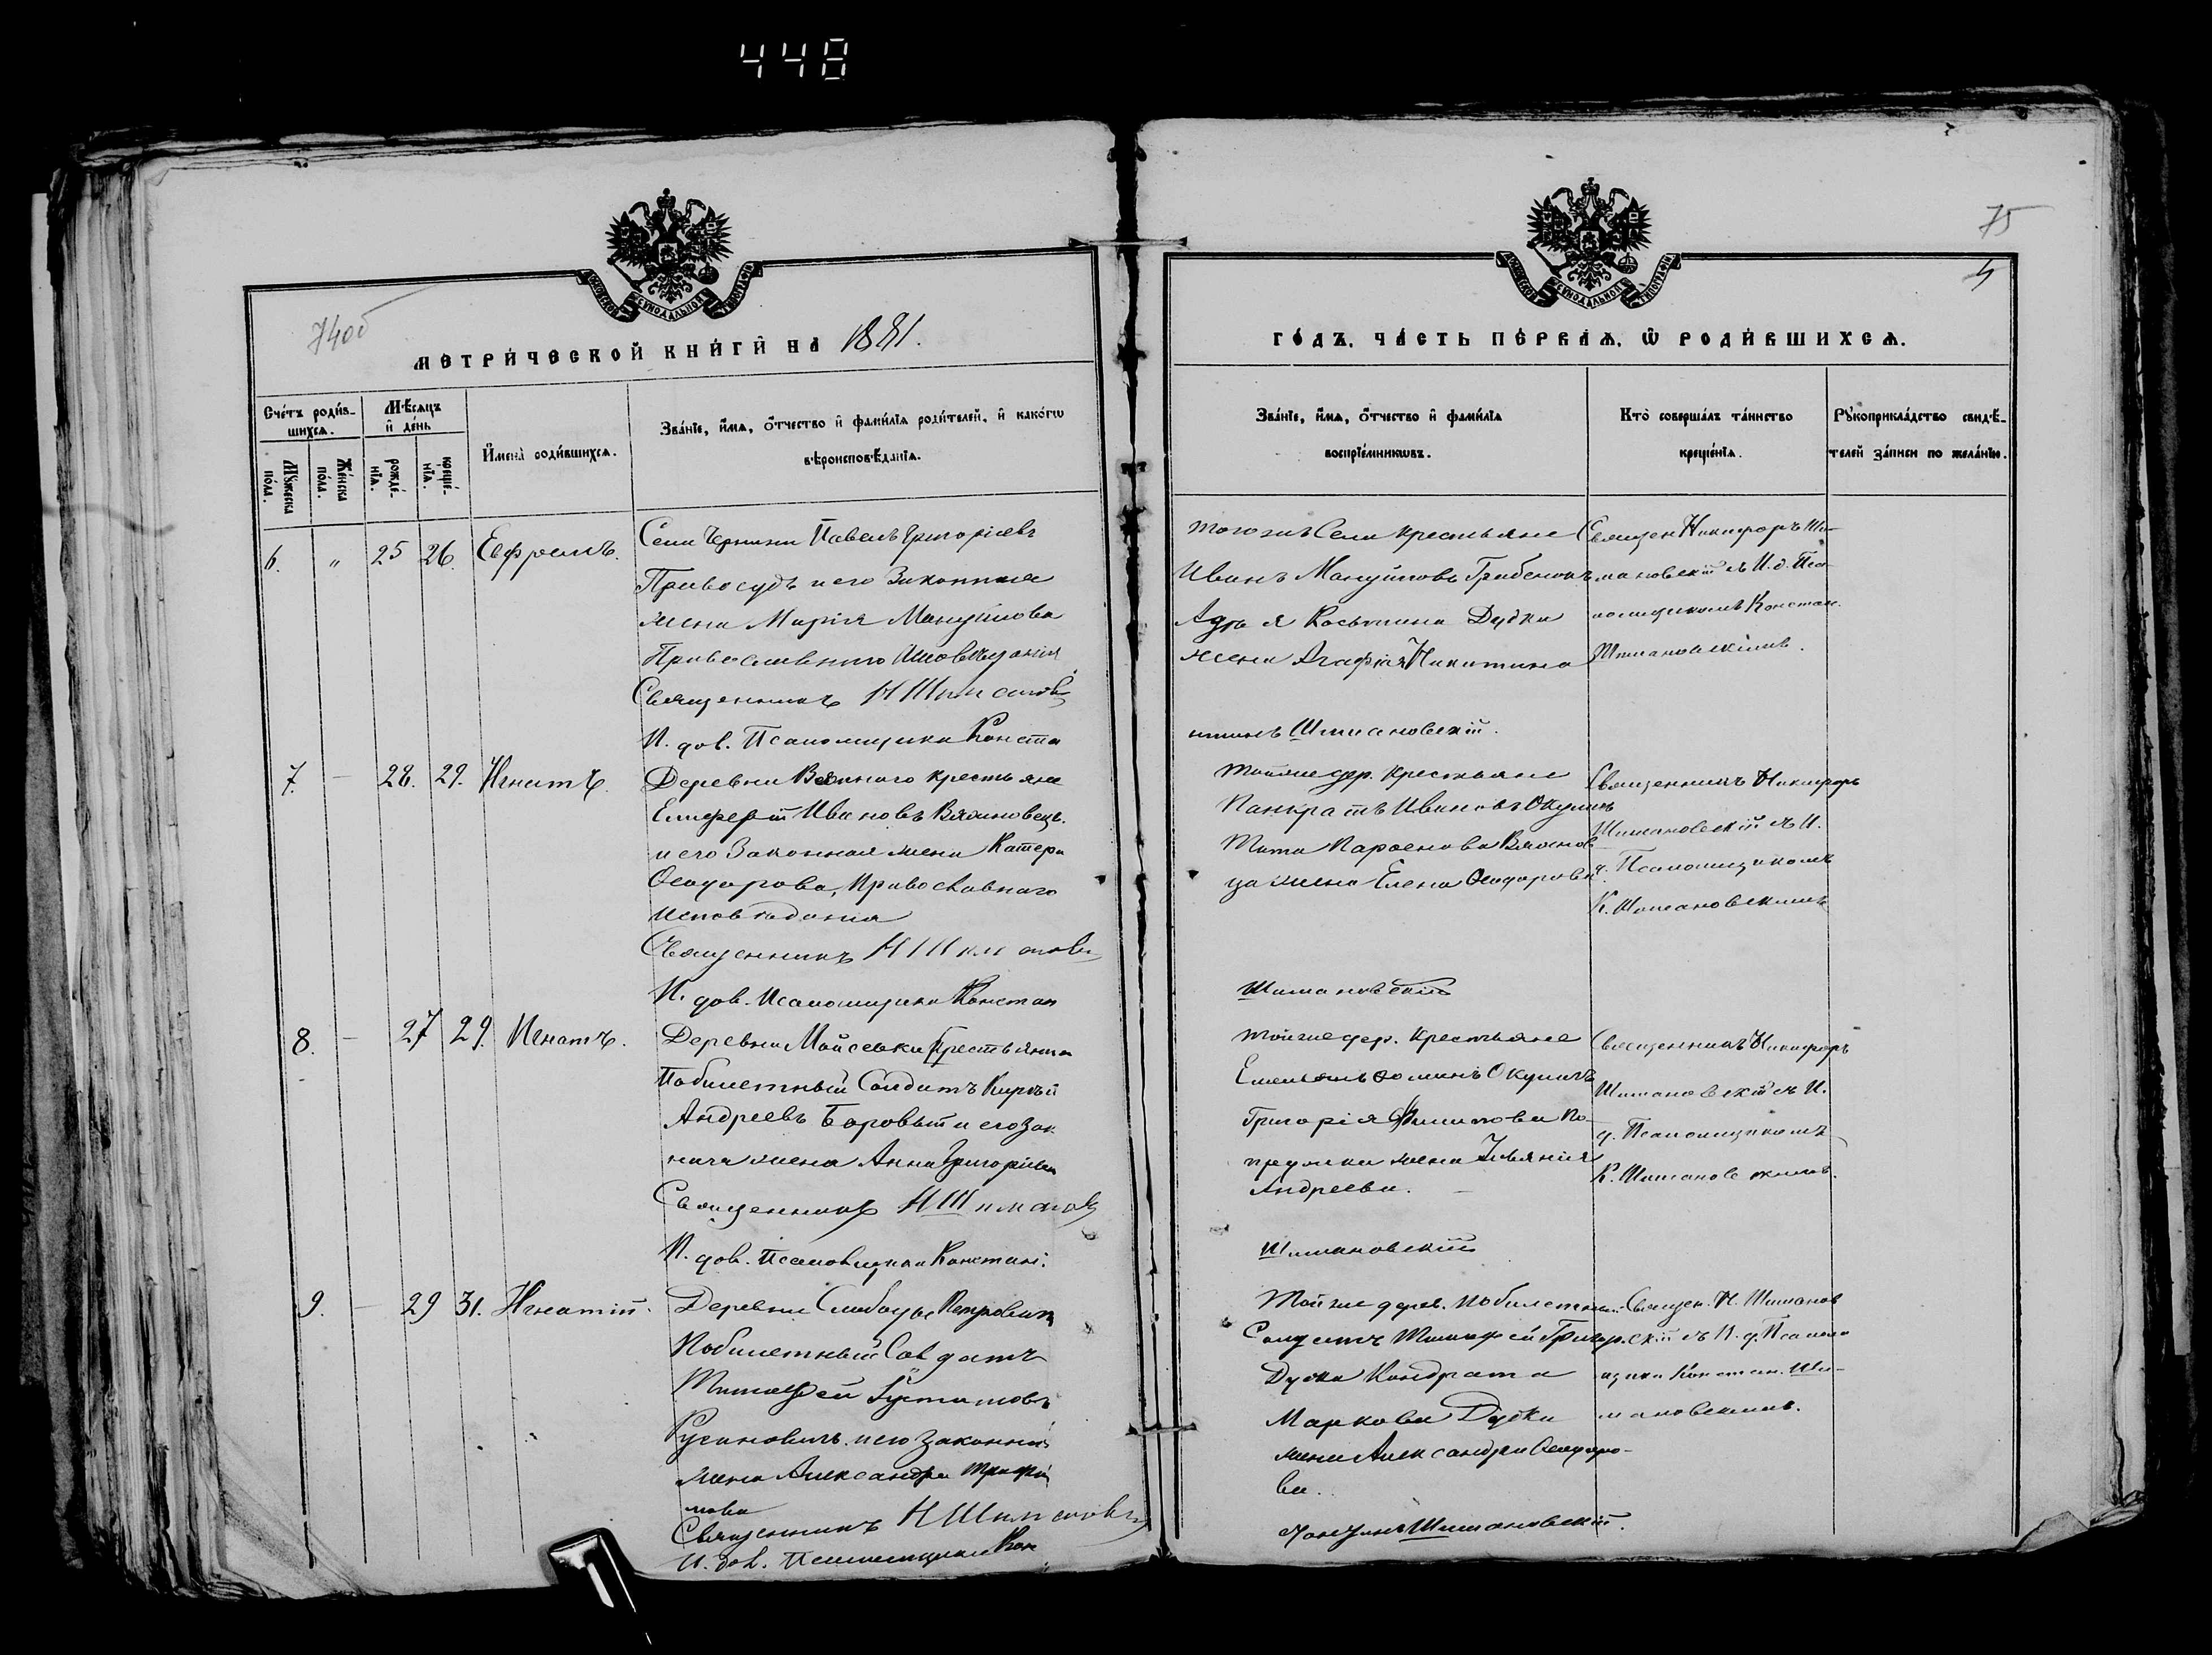 448
75
5
74об
МОСКОВСКОЙ СѴНОДАЛЬНОЙ ТИПОГРАФІИ
МОСКОВСКОЙ СѴНОДАЛЬНОЙ ТИПОГРАФІИ
МЕТРИ́ЧЕСКОЙ КНИ́ГИ НА 1881.
ГО́ДЪ, ЧА́СТЬ ПЕ́РВАЯ, Ѡ РОДИ́ВШИХСЯ.
Сче́тъ роди́в-
шихся.
Мѣ́сяцъ
и де́нь
Му́жеска
по́ла.
Же́нска
по́ла.
рожде́-
нїя.
креще́-
нїя.
И́мена роди́вшихся.
Зва́нїе, и́мя, о́тчество и фами́лїя роди́телей, и како́гѡ
вѣроисповѣ́данїя.
Зва́нїе, и́мя, о́тчество и фами́лїя
воспрїе́мникѡвъ.
Кто̀ соверша́лъ та́инство
креще́нїя.
Рꙋкоприкла́дство свидѣ́-
телей за́писи по жела́нїю.
6. " 25 26. Ефремъ.
Села Павелъ Григоріевъ
и его Законная
жена Марія Мануйлова
Православнаго Исповѣданія
Священникъ Н Шиманов
И. дов. Псаломщика Конста
тогожъ Села крестьяне
Иванъ Мануйловъ
Косьмина Дудки
жена Агафія Никитина
нтинъ Шимановскій.
Священ Никифоръ Ши-
мановскій съ И. д. Пса-
ломщикомъ Констан.
Шимановскимъ.
7. — 28. 29. Игнатъ.
Деревни крестьяне
Ивановъ
и его Законная жена Катери
Ѳеодорова, Православнаго
исповѣданія
Священникъ Н Шиманов
И. дов. Псаломщика Констан
тойже дер. крестьяне
Панкратъ Ивановъ Окуличъ
Тита Парѳенова
жена Елена Ѳеодорова
Шимановскій
Священникъ Никифоръ
Шимановскій съ И.
д. Псаломщикомъ
К. Шимановскимъ
8. — 27 29. Игнатъ.
Деревни Мойсеевки Крестьянин
Побилетный Солдатъ
Андреевъ Боровый и его Зак
жена Анна Григоріева
Священникъ Н Шиманов
И. дов. Псаломщика Констан.
тойже дер. крестьяне
Ѳоминъ Окуличъ
Григорія Филипова По-
жена Ульянія
Андреева. —
Шимановскій
Священникъ Никифоръ
Шимановскій съ И.
д. Псаломщикомъ
К. Шимановскимъ.
9. — 29 31. Игнатій.
Деревни Слободы
Побилетный Солдатъ
Тимофей
Русиновичъ и его Законная
жена Александра Трофи
мова
Священникъ Н Шимановс
И. дов. Псаломщика Кон
Той же дерев. Побилетный
Солдатъ Тимофей Григор.
Дудка Кондрата
Маркова Дудки
жена Александра Ѳеодоро-
ва.
Шимановскій.
Священ. Н. Шиманов
скій съ И. д. Псалом
щика Констан. Ши-
мановскимъ.